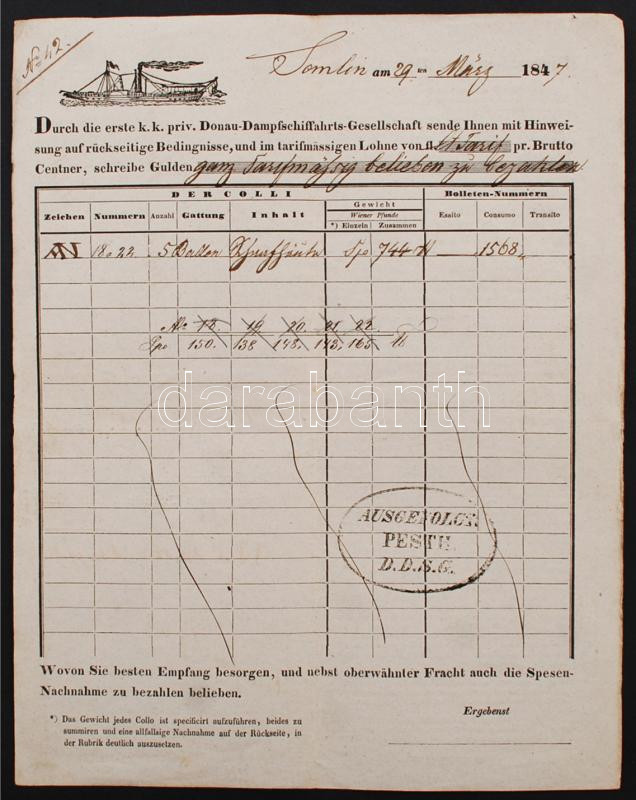 No 42.
Semlin am 29ten März 1847.
Durch die erste k.k. priv. Donau-Dampfschiffahrts-Gesellschaft sende Ihnen mit Hinwei-
sung auf rückseitige Bedingnisse, und im tarifmässigen Lohne von fl. Tarif pr. Brutto
Centner, schreibe Gulden ganz Tarifmässig belieben zu bezahlen
DER COLLI Bolleten-Nummern
Zeichen Nummern Anzahl Gattung Inhalt Gewicht Essito Consumo Transito
Wiener Pfunde
*) Einzeln Zusammen
AN 18 a 22 5 Ballen Schaffhäute Spo 744 — 1568
No 18. 19 20. 21 22
Spo 150. 138 148. 143. 165
darabanth
AUSGEFOLGT.
PESTH.
D.D.S.G.
Wovon Sie besten Empfang besorgen, und nebst oberwähnter Fracht auch die Spesen-
Nachnahme zu bezahlen belieben.
Ergebenst
*) Das Gewicht jedes Collo ist specificirt aufzuführen, beides zu
summiren und eine allfallsige Nachnahme auf der Rückseite, in
der Rubrik deutlich auszusetzen.